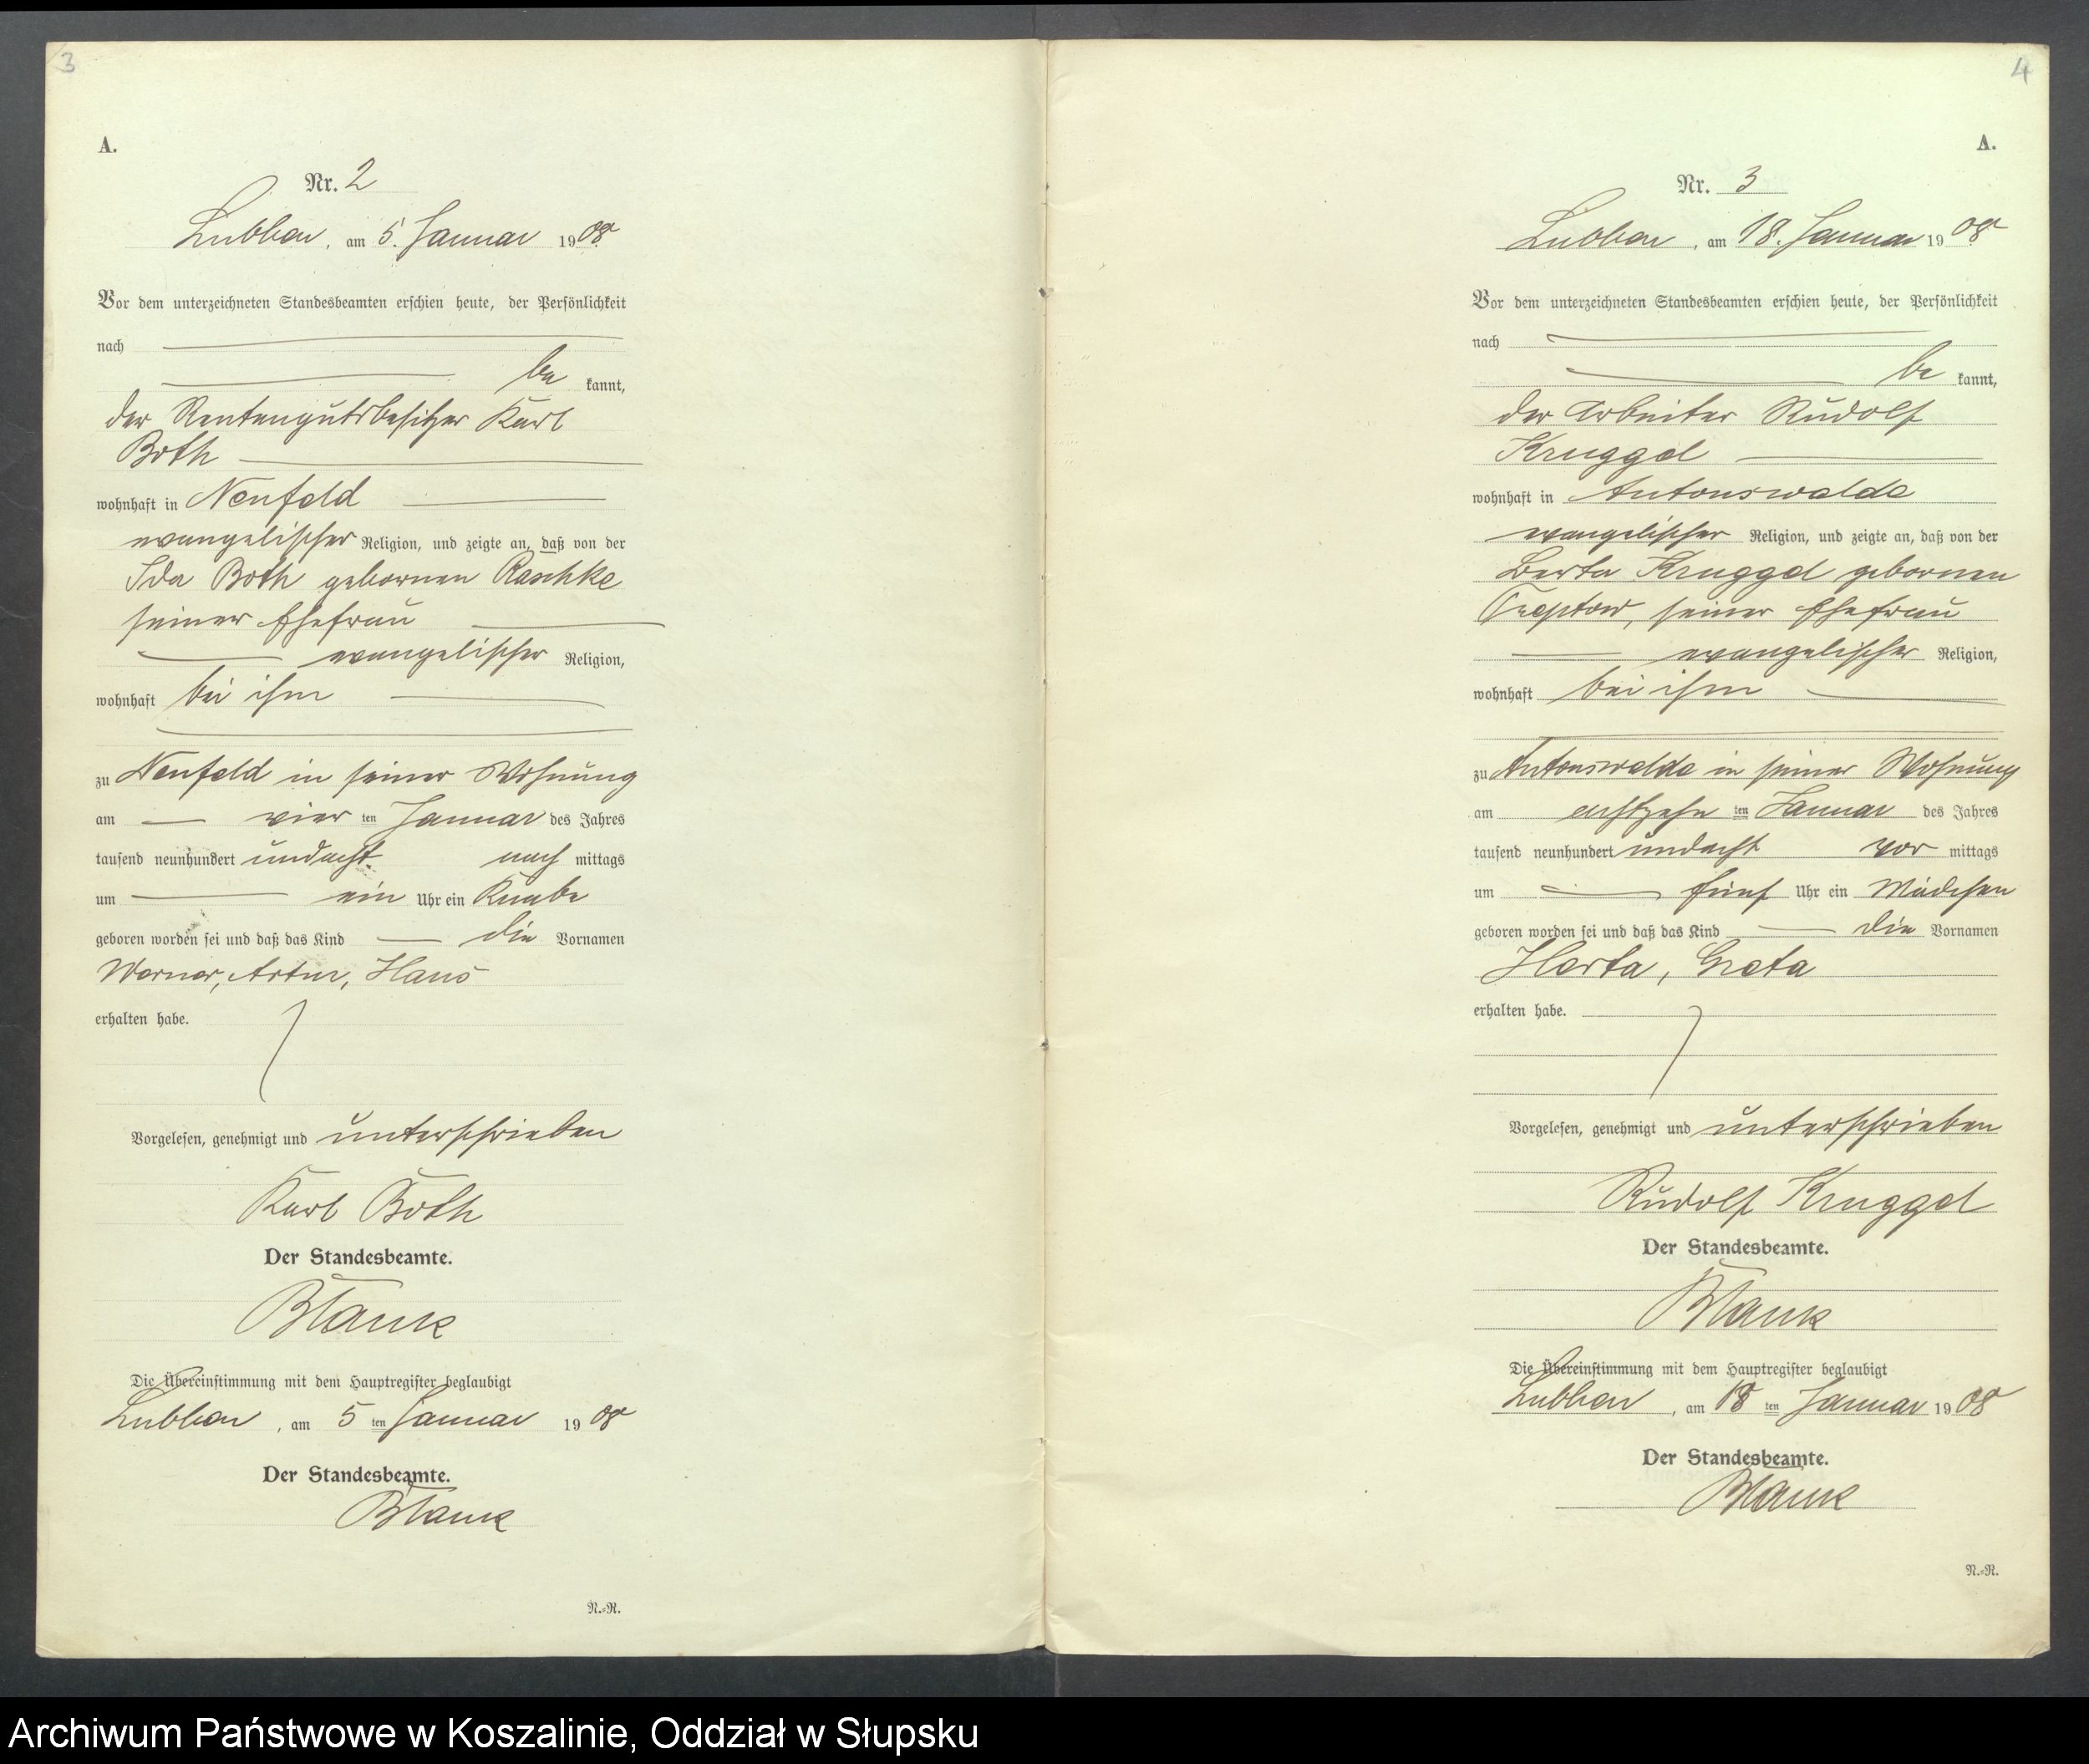 3
A.
Nr. 2
Lubben, am 5. Januar 1908
Vor dem unterzeichneten Standesbeamten erschien heute, der Persönlichkeit
nach
be kannt,
der Rentengutsbesitzer Karl
Both
wohnhaft in Neufeld
evangelischer Religion, und zeigte an, daß von der
Ida Both gebornen Raschke
seiner Ehefrau
evangelischer Religion,
wohnhaft bei ihm
zu Neufeld in seiner Wohnung
am vier ten Januar des Jahres
tausend neunhundert undacht nach mittags
um ein Uhr ein Knabe
geboren worden sei und daß das Kind die Vornamen
Werner, Artur, Hans
erhalten habe.
Vorgelesen, genehmigt und unterschrieben
Karl Both
Der Standesbeamte.
Blank
Die Übereinstimmung mit dem Hauptregister beglaubigt
Lubben, am 5 ten Januar 1908
Der Standesbeamte.
Blank
N.=R.
4
A.
Nr. 3
Lubben, am 18. Januar 1908
Vor dem unterzeichneten Standesbeamten erschien heute, der Persönlichkeit
nach
be kannt,
der Arbeiter Rudolf
Kruggel
wohnhaft in Antonswalde
evangelischer Religion, und zeigte an, daß von der
Berta Kruggel gebornen
Treptow, seiner Ehefrau
evangelischer Religion,
wohnhaft bei ihm
zu Antonswalde in seiner Wohnung
am achtzehn ten Januar des Jahres
tausend neunhundert undacht vor mittags
um fünf Uhr ein Mädchen
geboren worden sei und daß das Kind die Vornamen
Herta, Greta
erhalten habe.
Vorgelesen, genehmigt und unterschrieben
Rudolf Kruggel
Der Standesbeamte.
Blank
Die Übereinstimmung mit dem Hauptregister beglaubigt
Lubben, am 18 ten Januar 1908
Der Standesbeamte.
Blank
N.=R.
Archiwum Państwowe w Koszalinie, Oddział w Słupsku